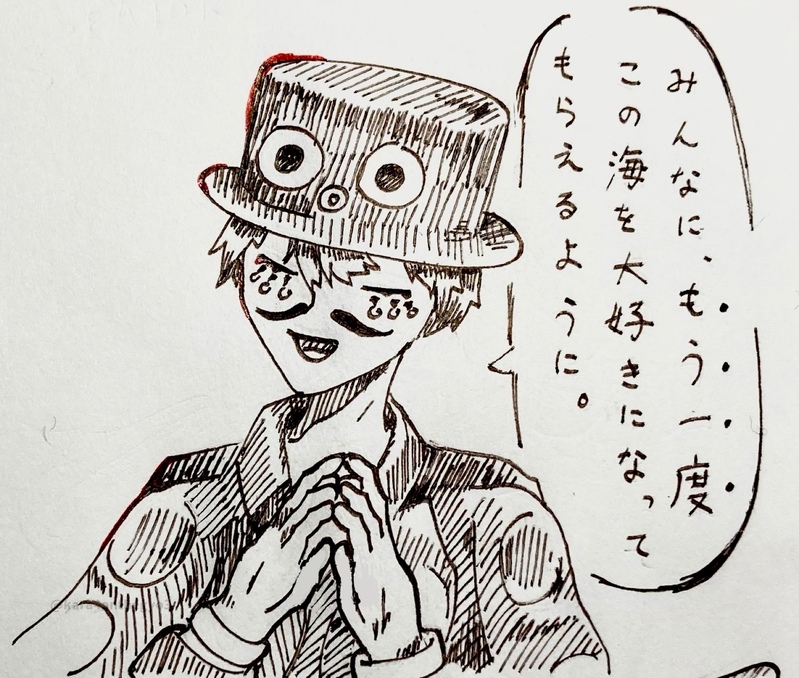 みんなに、もう一度
この海を大好きになって
もらえるように。